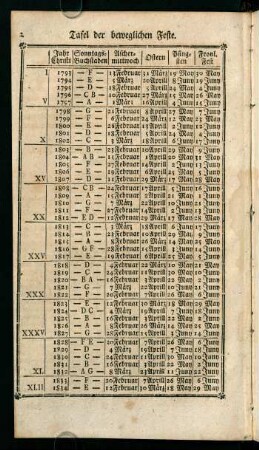 2 Tafel der beweglichen Feste.
Jahr Christi Sonntags-Buchstaben Ascher-mittwoch Ostern Pfing-sten Fronl. Fest
I 1793 — F — 13 Februar 31 März 19 May 30 May
1794 — E — 5 März 20 April 8 Juny 19 Juny
1795 — D — 18 Februar 5 April 24 May 4 Juny
1796 — CB — 10 Februar 27 März 15 May 26 May
V 1797 — A — 1 März 16 April 4 Juny 15 Juny
1798 — G — 21 Februar 8 April 27 May 7 Juny
1799 — F — Februar 24 März 12 May 23 May
1800 — E — 26 Februar 13 April 1 Juny 12 Juny
1801 — D — 18 Februar 5 April 24 May 4 Juny
X 1802 — C — 3 März 18 April 6 Juny 17 Juny
1803 — B — Februar 10 April 29 May 9 Juny
1804 — Februar 1 April May May
1805 — F — Februar 14 April 2 Juny 13 Juny
1806 — E — Februar 6 April 25 May 5 Juny
XV 1807 — D — 11 Februar 29 März 17 May 28 May
1808 — CB — Februar 17 April 5 Juny 16 Juny
1809 — A — 15 Februar 2 April 21 May 1 Juny
1810 — G — 7 März 22 April 10 Juny 21 Juny
1811 — F — 27 Februar 14 April 2 Juny 13 Juny
XX 1812 — ED — Februar 29 März 17 May 28 May
1813 — C — 3 März 18 April 6 Juny 17 Juny
1814 — B — 23 Februar 10 April 29 May 9 Juny
1815 — A — 8 Februar 26 März 14 May 25 May
1816 — GF — 28 Februar 14 April 2 Juny 13 Juny
XXV 1817 — E — 19 Februar 6 April 25 May 5 Juny
1818 — D — 4 Februar 22 März 10 May 21 May
1819 — C — 24 Februar 11 April 30 May 10 Juny
1820 — BA — 16 Februar 2 April 21 May 1 Juny
1821 — G — 7 März 22 April 10 Juny 21 Juny
XXX 1822 — F — Februar 7 April 26 May 6 Juny
1823 — E — Februar 30 März 18 May 29 May
1824 — DC — 3 März 18 April 6 Juny 17 Juny
1825 — B — 16 Februar 3 April 22 May 2 Juny
1826 — A — 8 Februar 26 März 14 May 25 May
XXXV 1827 — G — 28 Februar 15 April 3 Juny 14 Juny
1828 — FE — Februar 6 April 25 May 5 Juny
1829 — D — 4 März 19 April 7 Juny 18 Juny
1830 — C — 24 Februar 11 April 30 May 10 Juny
1831 — B — 16 Februar 3 April 22 May 2 Juny
XL 1832 — AG — März 22 April 10 Juny 21 Juny
1833 — F — 20 Februar 7 April 26 May 6 Juny
XLII 1834 — E — 12 Februar 30 März 18 May 29 May